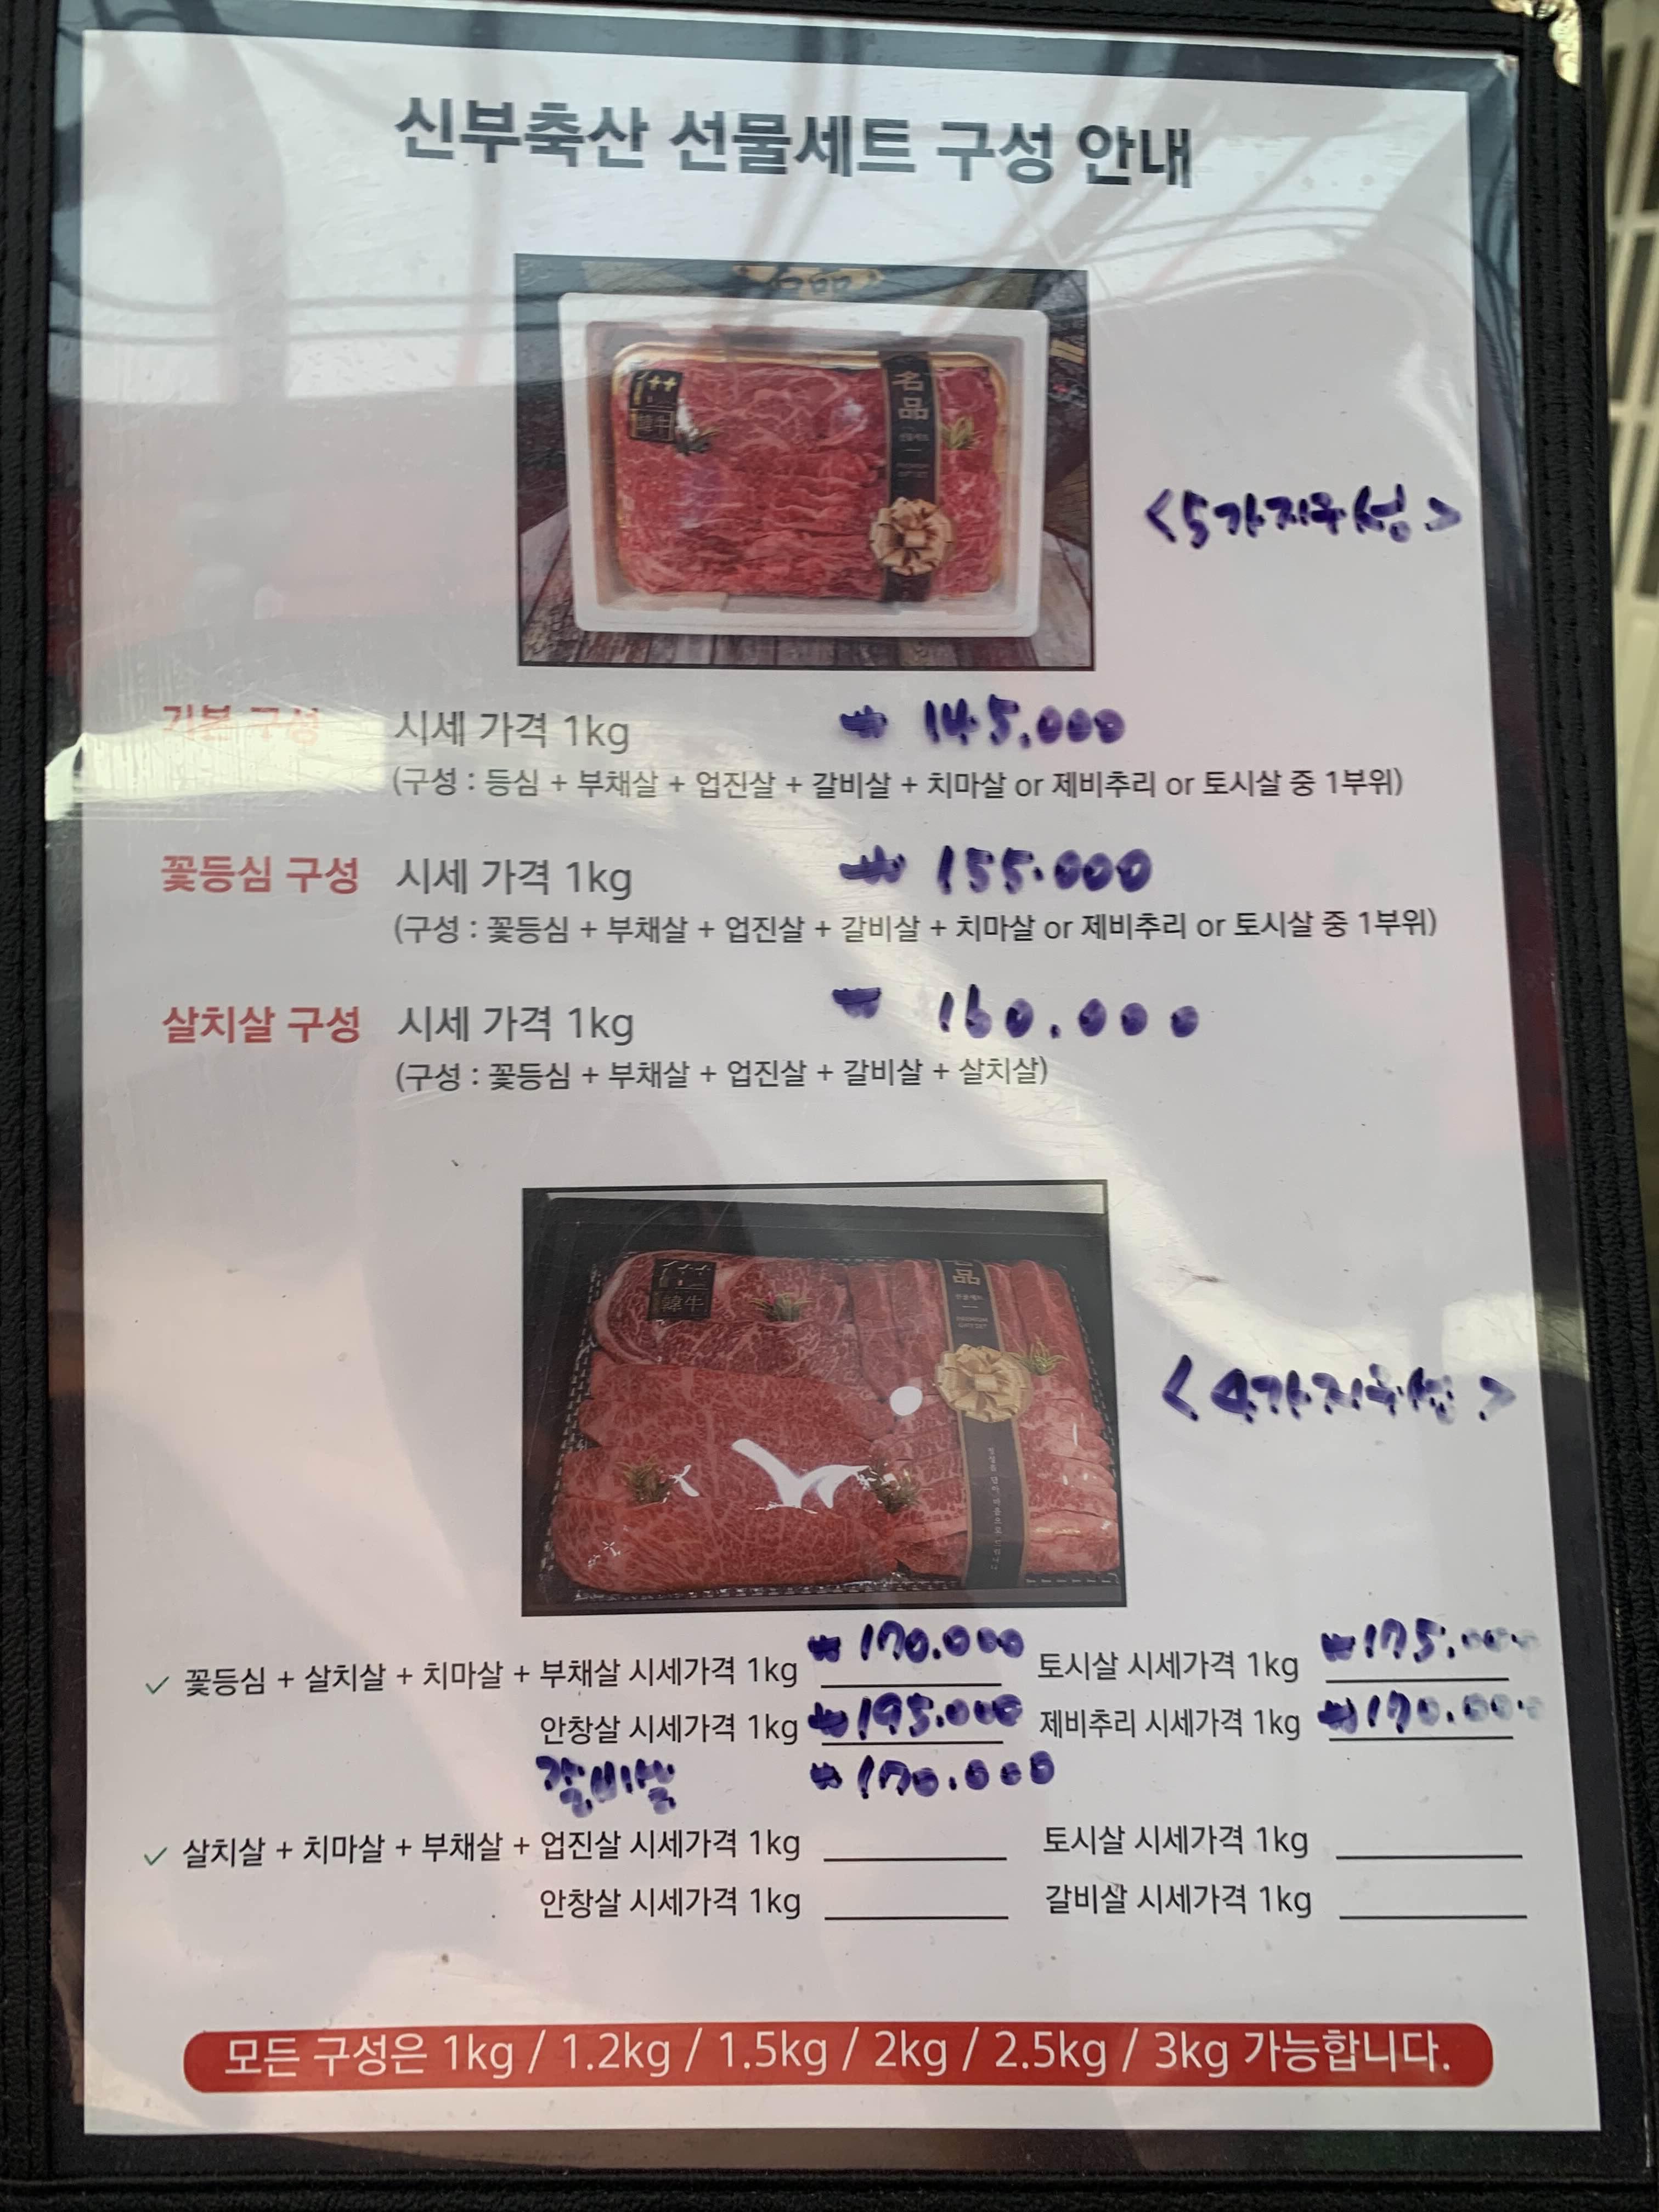 신부축산 선물세트 구성 안내
1++
韓牛
名品
<5가지구성>
기본 구성 시세 가격 1kg ₩ 145.000
(구성 : 등심 + 부채살 + 업진살 + 갈비살 + 치마살 or 제비추리 or 토시살 중 1부위)
꽃등심 구성 시세 가격 1kg ₩ 155.000
(구성 : 꽃등심 + 부채살 + 업진살 + 갈비살 + 치마살 or 제비추리 or 토시살 중 1부위)
살치살 구성 시세 가격 1kg ₩ 160.000
(구성 : 꽃등심 + 부채살 + 업진살 + 갈비살 + 살치살)
韓牛
品
PREMIUM
GIFT SET
<4가지구성>
✓ 꽃등심 + 살치살 + 치마살 + 부채살 시세가격 1kg ₩170.000 토시살 시세가격 1kg ₩175.000
안창살 시세가격 1kg ₩195.000 제비추리 시세가격 1kg ₩170.000
갈비살 ₩170.000
✓ 살치살 + 치마살 + 부채살 + 업진살 시세가격 1kg 토시살 시세가격 1kg
안창살 시세가격 1kg 갈비살 시세가격 1kg
모든 구성은 1kg / 1.2kg / 1.5kg / 2kg / 2.5kg / 3kg 가능합니다.